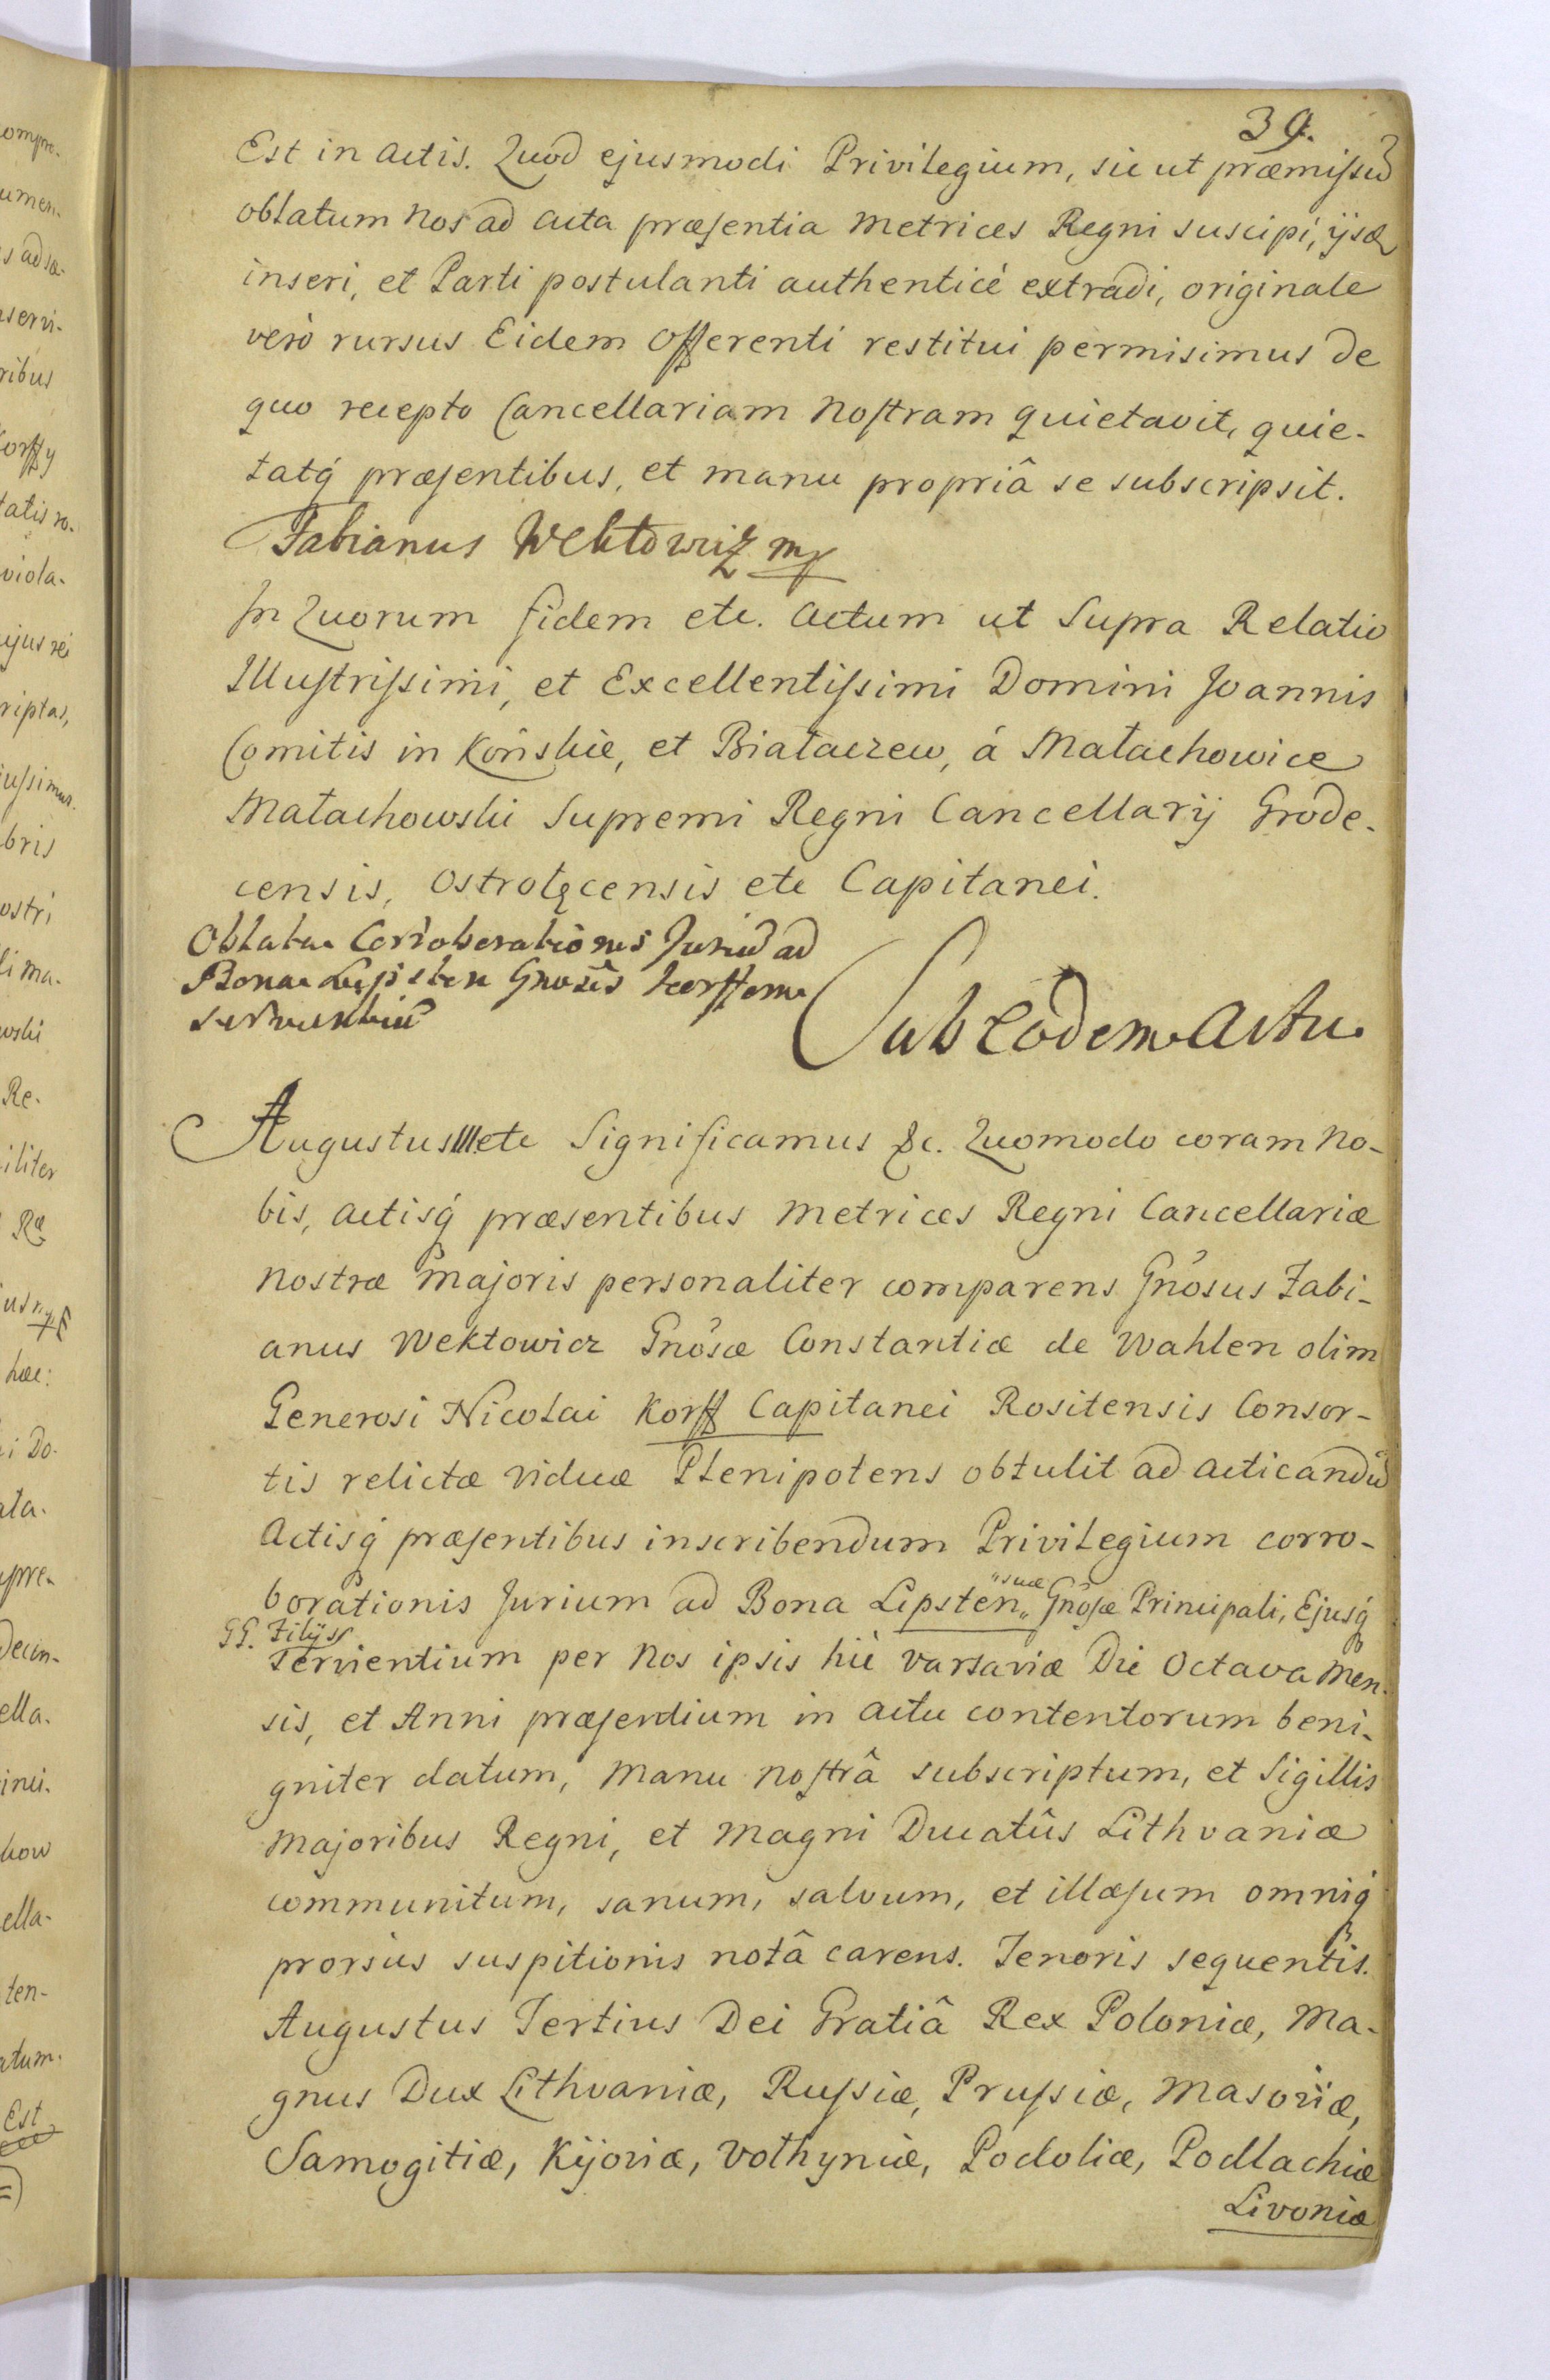 39.
Est in Actis. Quod ejusmodi Privilegium, sic ut præmissũ
oblatum Nos ad Acta præsentia Metrices Regni suscipi, ijsq
inseri, et Parti postulanti authenticè extradi, originale
verò rursus Eidem Offerenti restitui permisimus de
quo recepto Cancellariam Nostram quietavit, quie-
tatq́ præsentibus, et manu propriâ se subscripsit.
Fabianus Wektowicz mp
In Quorum fidem etc. Actum ut Supra Relatio
Illustrissimi, et Excellentissimi Domini Joannis
Comitis in Końskie, et Białaczew, á Małachowice
Małachowski Supremi Regni Cancellarij Grode-
censis, Ostrołęcensis etc Capitanei.
Oblata Corroborationis Juriũ ad
Bona Lepsten Gnosæ Korffowa
servientiũ
Sub eodem Actu
Augustus III etc Significamus &c. Quomodo coram No-
bis, Actisq́ præsentibus Metrices Regni Cancellariæ
Nostræ Majoris personaliter comparens Gnosus Fabi-
anus Wektowicz Gnosæ Constantiæ de Wahlen olim
Generosi Nicolai Korff Capitanei Rositensis Consor-
tis relictæ viduæ Plenipotens obtulit ad Acticandũ
Actisq́ præsentibus inscribendum Privilegium corro-
"suæ
borationis Jurium ad Bona Lepsten" Gnosæ Principali, Ejusq́
GG. Filijs
servientium per Nos ipsis hìc Varsaviæ Die Octava Men-
sis, et Anni præsentium in Actu contentorum beni-
gniter datum, Manu Nostrâ subscriptum, et Sigillis
Majoribus Regni, et Magni Ducatûs Lithvaniæ
communitum, sanum, salvum, et illæsum omniq́
prorsùs suspitionis notâ carens. Tenoris sequentis.
Augustus Tertius Dei Gratiâ Rex Poloniæ, Ma-
gnus Dux Lithvaniæ, Russiæ, Prussiæ, Masoviæ,
Samogitiæ, Kijoviæ, Volhyniæ, Podoliæ, Podlachiæ
Livoniæ